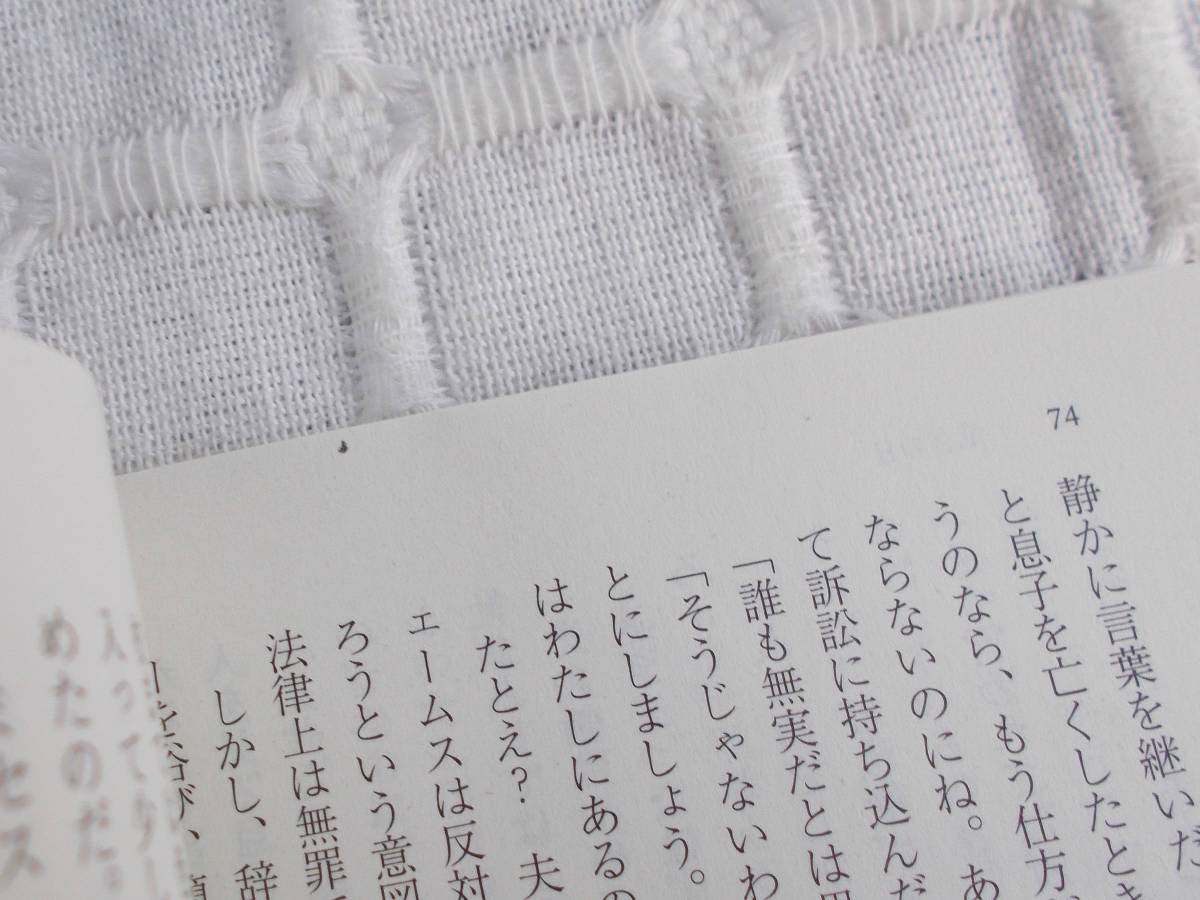 74
静かに言葉を継いだ
と息子を亡くしたとき
うのなら、もう仕方
ならないのにね。あ
て訴訟に持ち込んだ
「誰も無実だとは思
「そうじゃないわ
とにしましょう。
はわたしにあるの
たとえ? 夫
ェームスは反対
ろうという意図
法律上は無罪
しかし、辞
めたのだ。